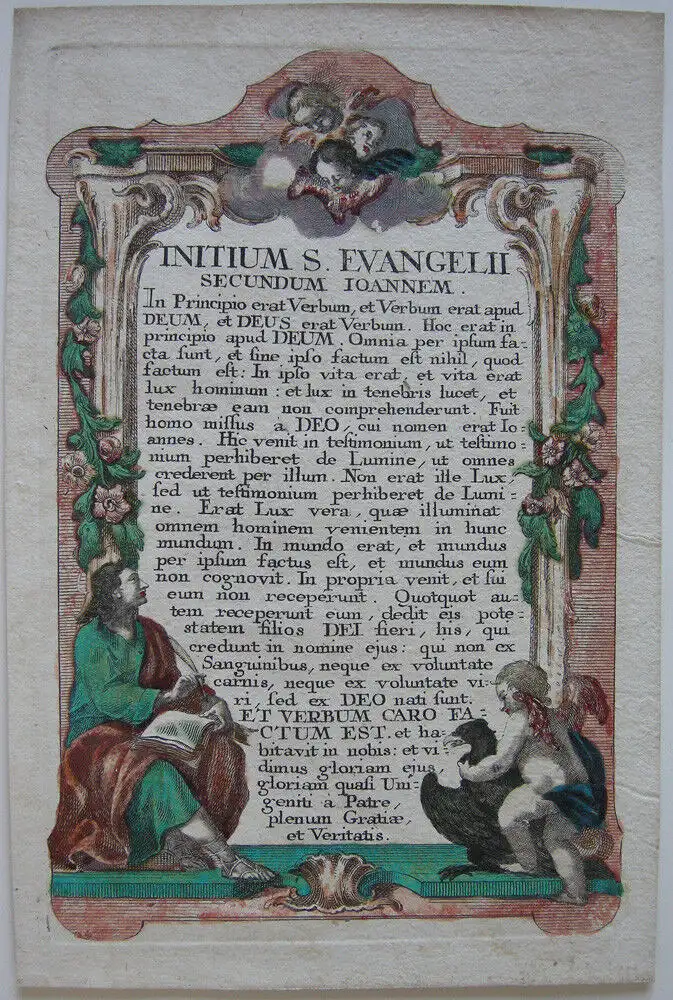 INITIUM S. EVANGELII
SECUNDUM IOANNEM.
In Principio erat Verbum, et Verbum erat apud
DEUM, et DEUS erat Verbum. Hoc erat in
principio apud DEUM. Omnia per ipſum fa-
cta ſunt, et ſine ipſo factum eſt nihil, quod
factum eſt: In ipſo vita erat, et vita erat
lux hominum: et lux in tenebris lucet, et
tenebræ eam non comprehenderunt. Fuit
homo miſſus à DEO, cui nomen erat Io-
annes. Hic venit in teſtimonium, ut teſtimo-
nium perhiberet de Lumine, ut omnes
crederent per illum. Non erat ille Lux,
ſed ut teſtimonium perhiberet de Lumi-
ne. Erat Lux vera, quæ illuminat
omnem hominem venientem in hunc
mundum. In mundo erat, et mundus
per ipſum factus eſt, et mundus eum
non cognovit. In propria venit, et ſui
eum non receperunt. Quotquot au-
tem receperunt eum, dedit eis pote-
statem filios DEI fieri, his, qui
credunt in nomine ejus: qui non ex
Sanguinibus, neque ex voluntate
carnis, neque ex voluntate vi-
ri, ſed ex DEO nati ſunt.
ET VERBUM CARO FA-
CTUM EST. et ha-
bitavit in nobis: et vi-
dimus gloriam ejus,
gloriam quaſi Uni-
geniti à Patre,
plenum Gratiæ,
et Veritatis.